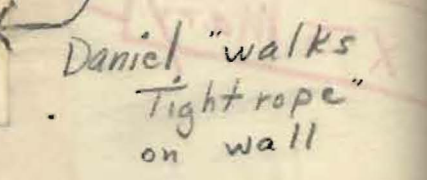 Daniel "walks
Tightrope"
on wall